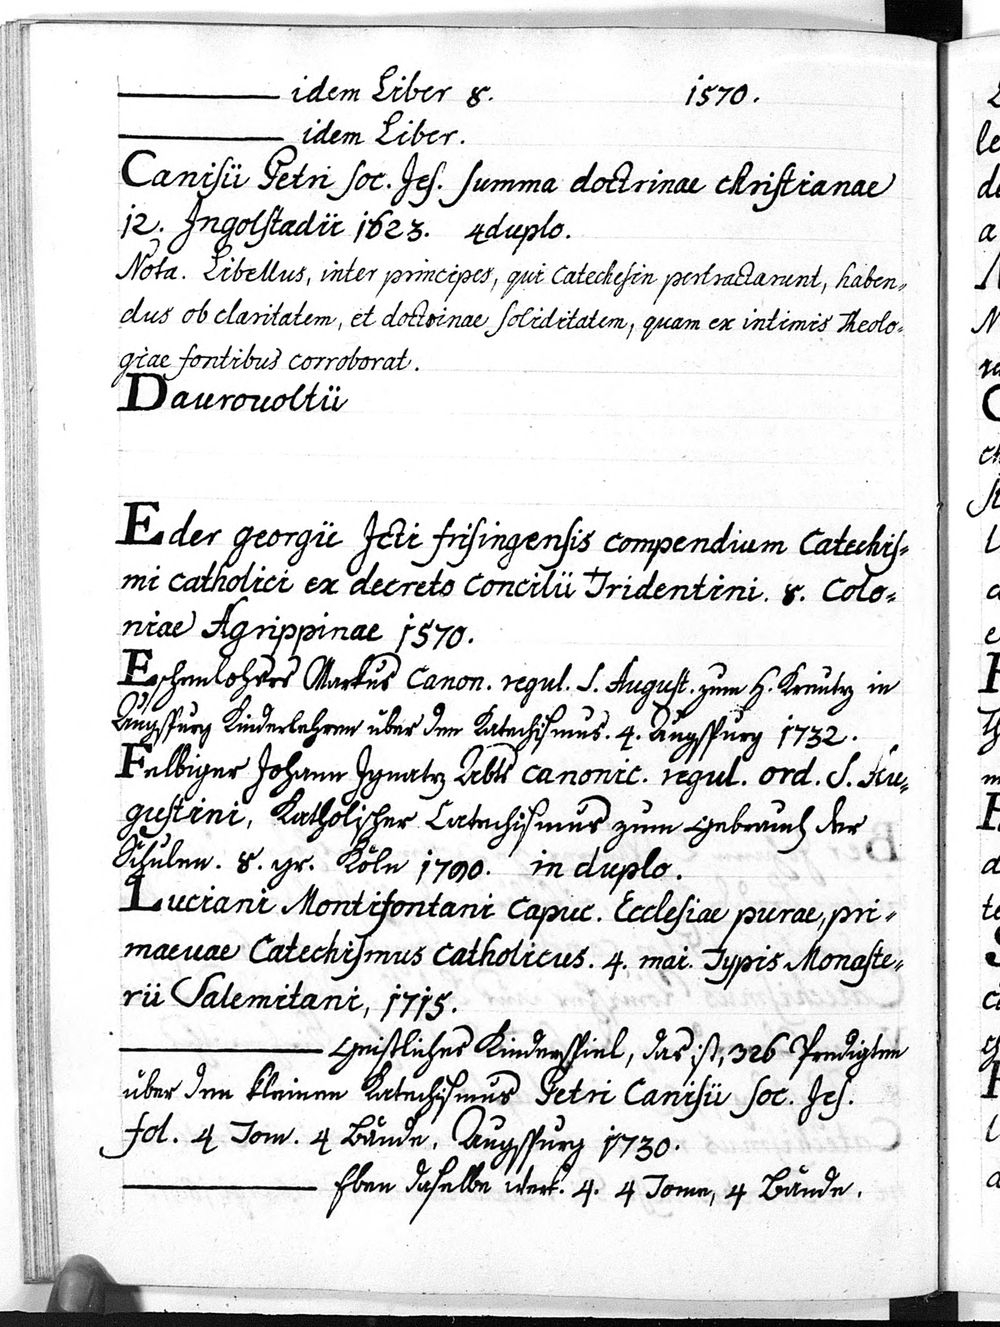 ——— idem Liber 8. 1570.
——— idem Liber.
Canisii Petri Soc. Jes. Summa doctrinae christianae
12. Ingolstadii 1623. 4duplo.
Nota. Libellus, inter principes, qui Catechesin pertractarunt, haben=
dus ob claritatem, et doctrinae soliditatem, quam ex intimis Theolo=
giae fontibus corroborat.
Daurouoltii
Eder georgii Jcti frisingensis compendium Catechis=
mi catholici ex decreto Concilii Tridentini. 8. Colo=
niae Agrippinae 1570.
Eschenlohers Markus Canon. regul. S. August. zum H. Kreutz in
Augspurg Kinderlehren über den Katechismus. 4. Augspurg 1732.
Felbiger Johann Ignatz Abts canonic. regul. ord. S. Au=
gustini, Katholischer Catechismus zum Gebrauch der
Schulen. 8. gr. Köln 1790. in duplo.
Luciani Montifontani Capuc. Ecclesiae purae, pri=
maeuae Catechismus catholicus. 4. mai. Typis Monaste=
rii Salemitani, 1715.
——— Geistliches Kinderspiel, das ist, 326 Predigten
über den kleinen Katechismus Petri Canisii Soc. Jes.
fol. 4 Tom. 4 Bände. Augspurg 1730.
——— Eben daselbe werk. 4. 4 Tome, 4 Bände.